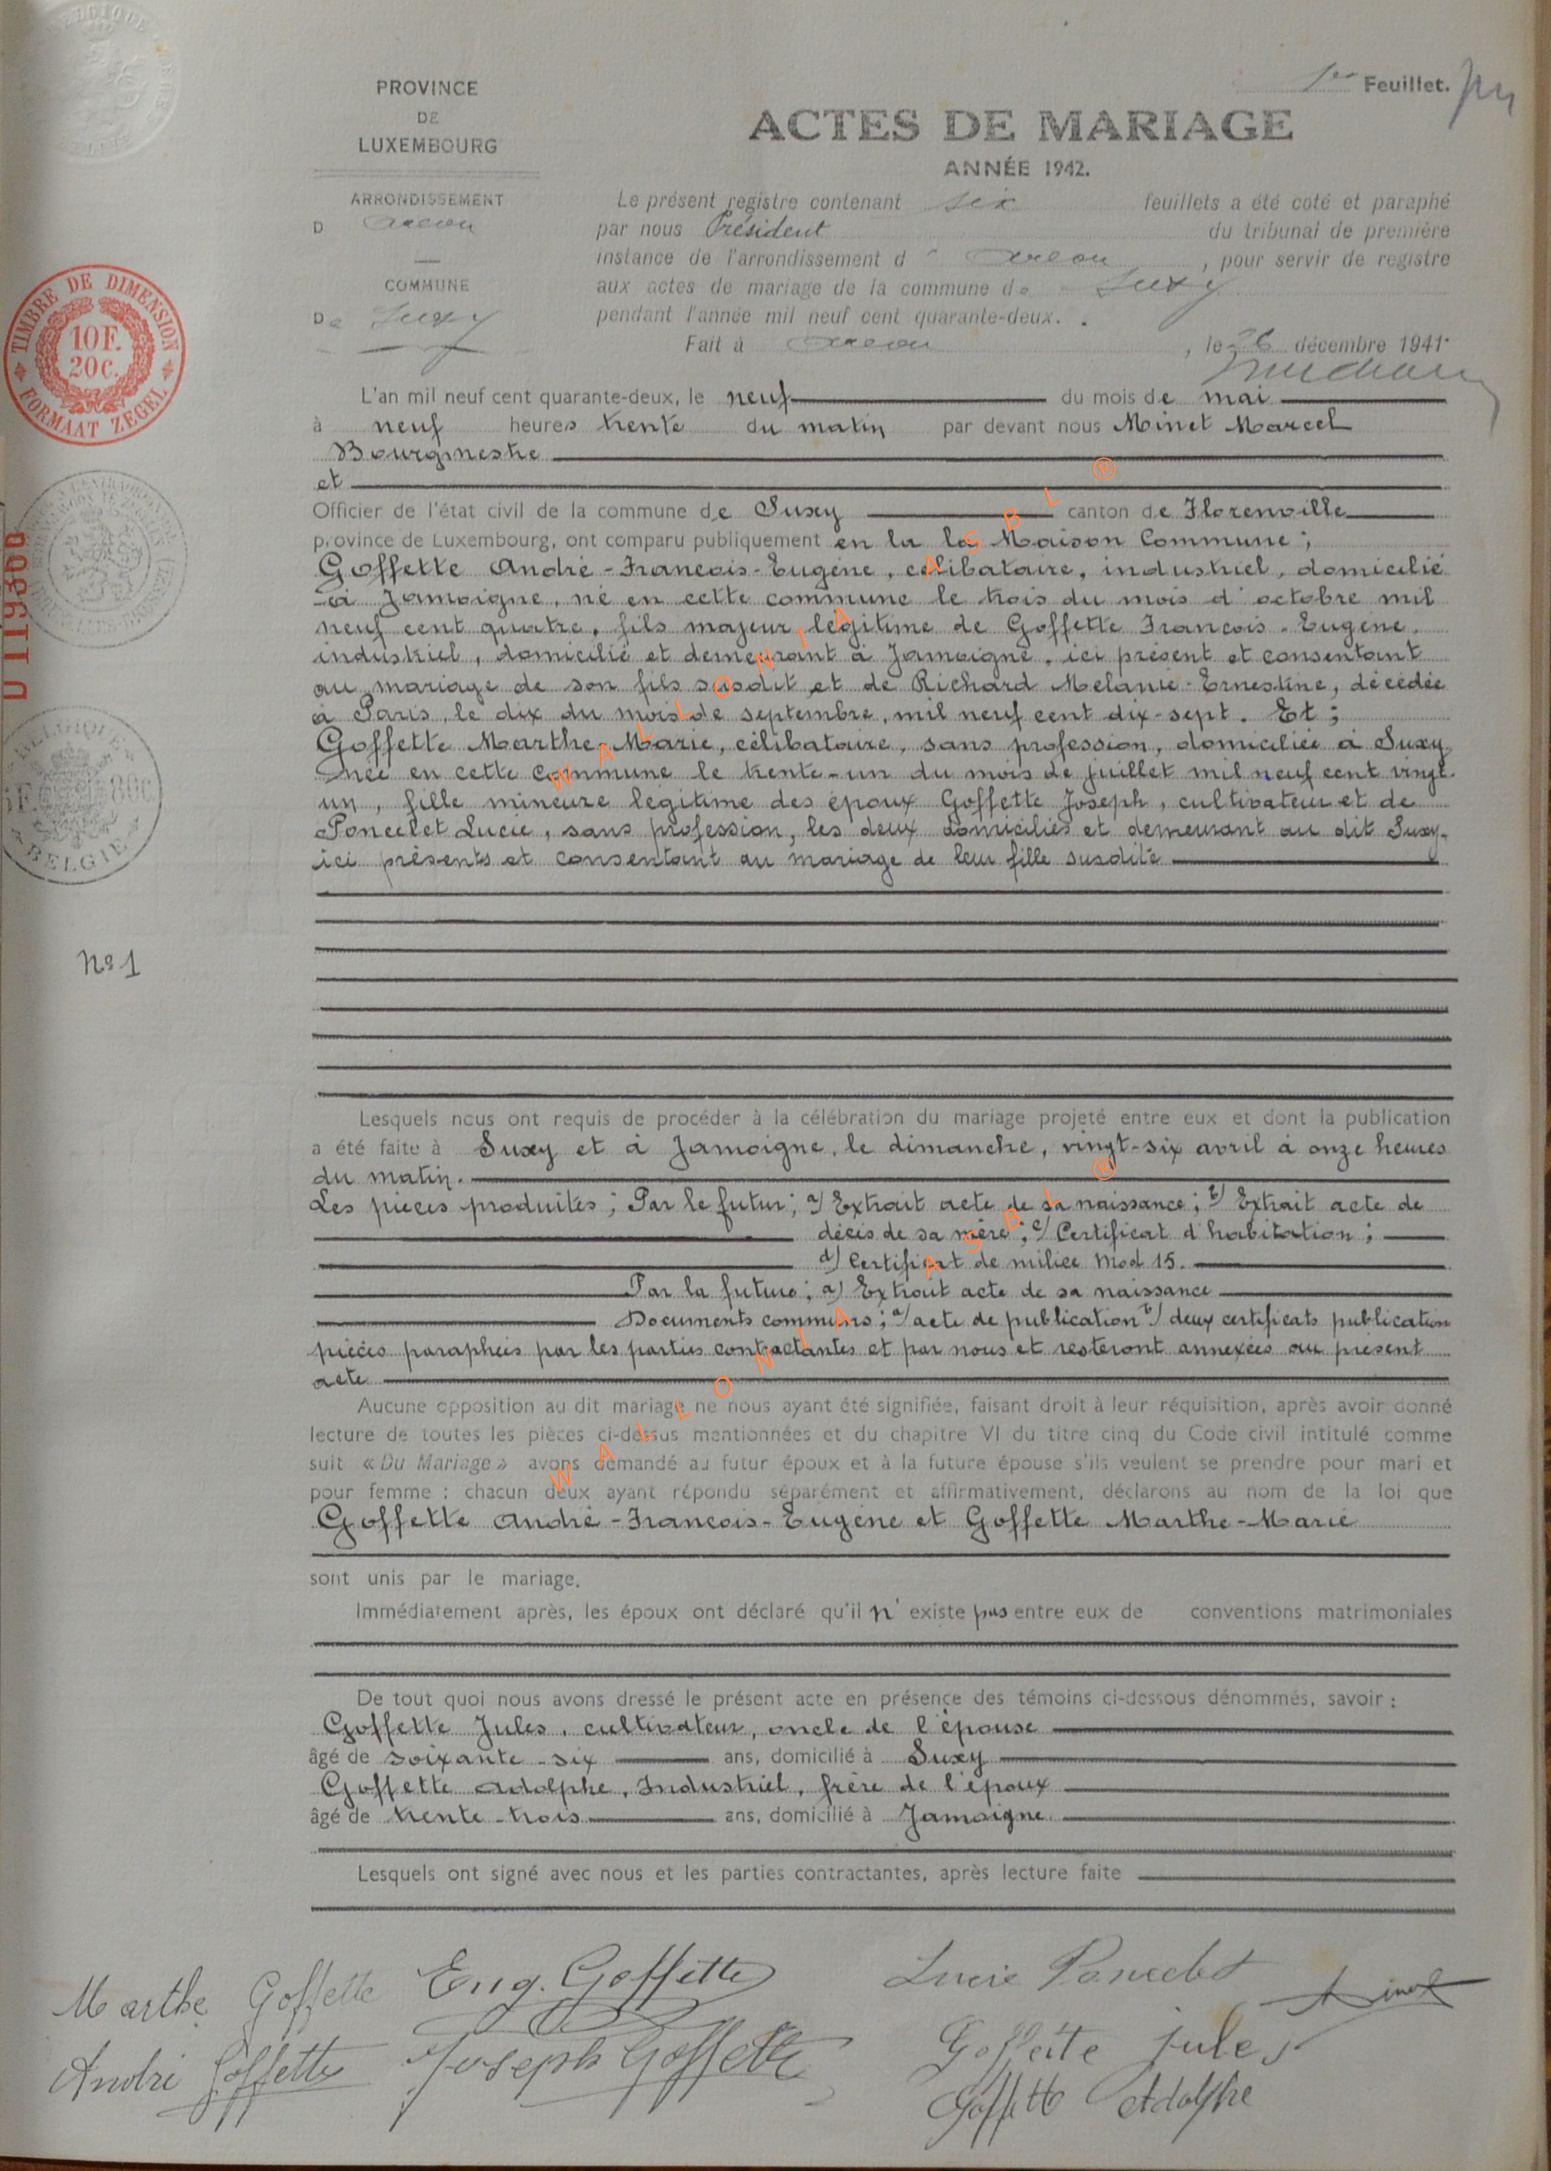 1er Feuillet.
PROVINCE
DE
LUXEMBOURG
ACTES DE MARIAGE
ANNÉE 1942.
ARRONDISSEMENT
D Arlon
COMMUNE
De Suxy
Le présent registre contenant six feuillets a été coté et paraphé
par nous Président du tribunal de première
instance de l'arrondissement d' Arlon, pour servir de registre
aux actes de mariage de la commune de Suxy
pendant l'année mil neuf cent quarante-deux.
Fait à Arlon, le 26 décembre 1941.
TIMBRE DE DIMENSION
10F.
20c.
FORMAAT ZEGEL
D 119300
BELGIQUE
BELGIE
No 1
L'an mil neuf cent quarante-deux, le neuf du mois de mai
à neuf heures trente du matin par devant nous Minet Marcel
Bourgmestre
et
Officier de l'état civil de la commune de Suxy canton de Florenville
province de Luxembourg, ont comparu publiquement en la la Maison Commune ;
Goffette André-François-Eugène, célibataire, industriel, domicilié
à Jamoigne, né en cette commune le trois du mois d'octobre mil
neuf cent quatre, fils majeur légitime de Goffette François-Eugène,
industriel, domicilié et demeurant à Jamoigne, ici présent et consentant
au mariage de son fils susdit et de Richard Mélanie-Ernestine, décédée
à Paris, le dix du mois de septembre, mil neuf cent dix-sept. Et ;
Goffette Marthe-Marie, célibataire, sans profession, domiciliée à Suxy,
née en cette commune le trente-un du mois de juillet mil neuf cent vingt-
un, fille mineure légitime des époux Goffette Joseph, cultivateur et de
Poncelet Lucie, sans profession, les deux domiciliés et demeurant au dit Suxy,
ici présents et consentant au mariage de leur fille susdite
Lesquels nous ont requis de procéder à la célébration du mariage projeté entre eux et dont la publication
a été faite à Suxy et à Jamoigne, le dimanche, vingt-six avril à onze heures
du matin.
Les pièces produites ; Par le futur ; a) Extrait acte de sa naissance ; b) Extrait acte de
décès de sa mère ; c) Certificat d'habitation ;
d) Certificat de milice Mod 15.
Par la future ; a) Extrait acte de sa naissance
Documents communs ; a) acte de publication b) deux certificats publication
pièces paraphées par les parties contractantes et par nous et resteront annexées au présent
acte
Aucune opposition au dit mariage ne nous ayant été signifiée, faisant droit à leur réquisition, après avoir donné
lecture de toutes les pièces ci-dessus mentionnées et du chapitre VI du titre cinq du Code civil intitulé comme
suit « Du Mariage » avons demandé au futur époux et à la future épouse s'ils veulent se prendre pour mari et
pour femme : chacun deux ayant répondu séparément et affirmativement, déclarons au nom de la loi que
Goffette André-François-Eugène et Goffette Marthe-Marie
sont unis par le mariage.
Immédiatement après, les époux ont déclaré qu'il n'existe pas entre eux de conventions matrimoniales
De tout quoi nous avons dressé le présent acte en présence des témoins ci-dessous dénommés, savoir :
Goffette Jules, cultivateur, oncle de l'épouse
âgé de soixante-six ans, domicilié à Suxy
Goffette Adolphe, Industriel, frère de l'époux
âgé de trente-trois ans, domicilié à Jamoigne
Lesquels ont signé avec nous et les parties contractantes, après lecture faite
Marthe Goffette Eug. Goffette Lucie Poncelet Minet
André Goffette Joseph Goffette Goffette Jules
Goffette Adolphe
WALLONIA ASBL ®
WALLONIA ASBL ®